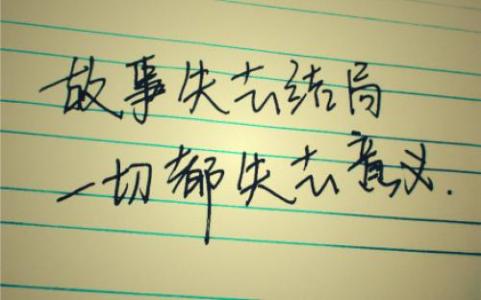 故事失去结局
一切都失去意义.